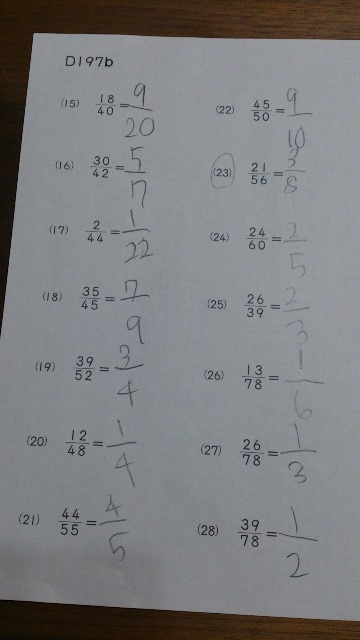 D197b
(15) 18/40 = 9/20
(16) 30/42 = 5/7
(17) 2/44 = 1/22
(18) 35/45 = 7/9
(19) 39/52 = 3/4
(20) 12/48 = 1/4
(21) 44/55 = 4/5
(22) 45/50 = 9/10
(23) 21/56 = 3/8
(24) 24/60 = 2/5
(25) 26/39 = 2/3
(26) 13/78 = 1/6
(27) 26/78 = 1/3
(28) 39/78 = 1/2